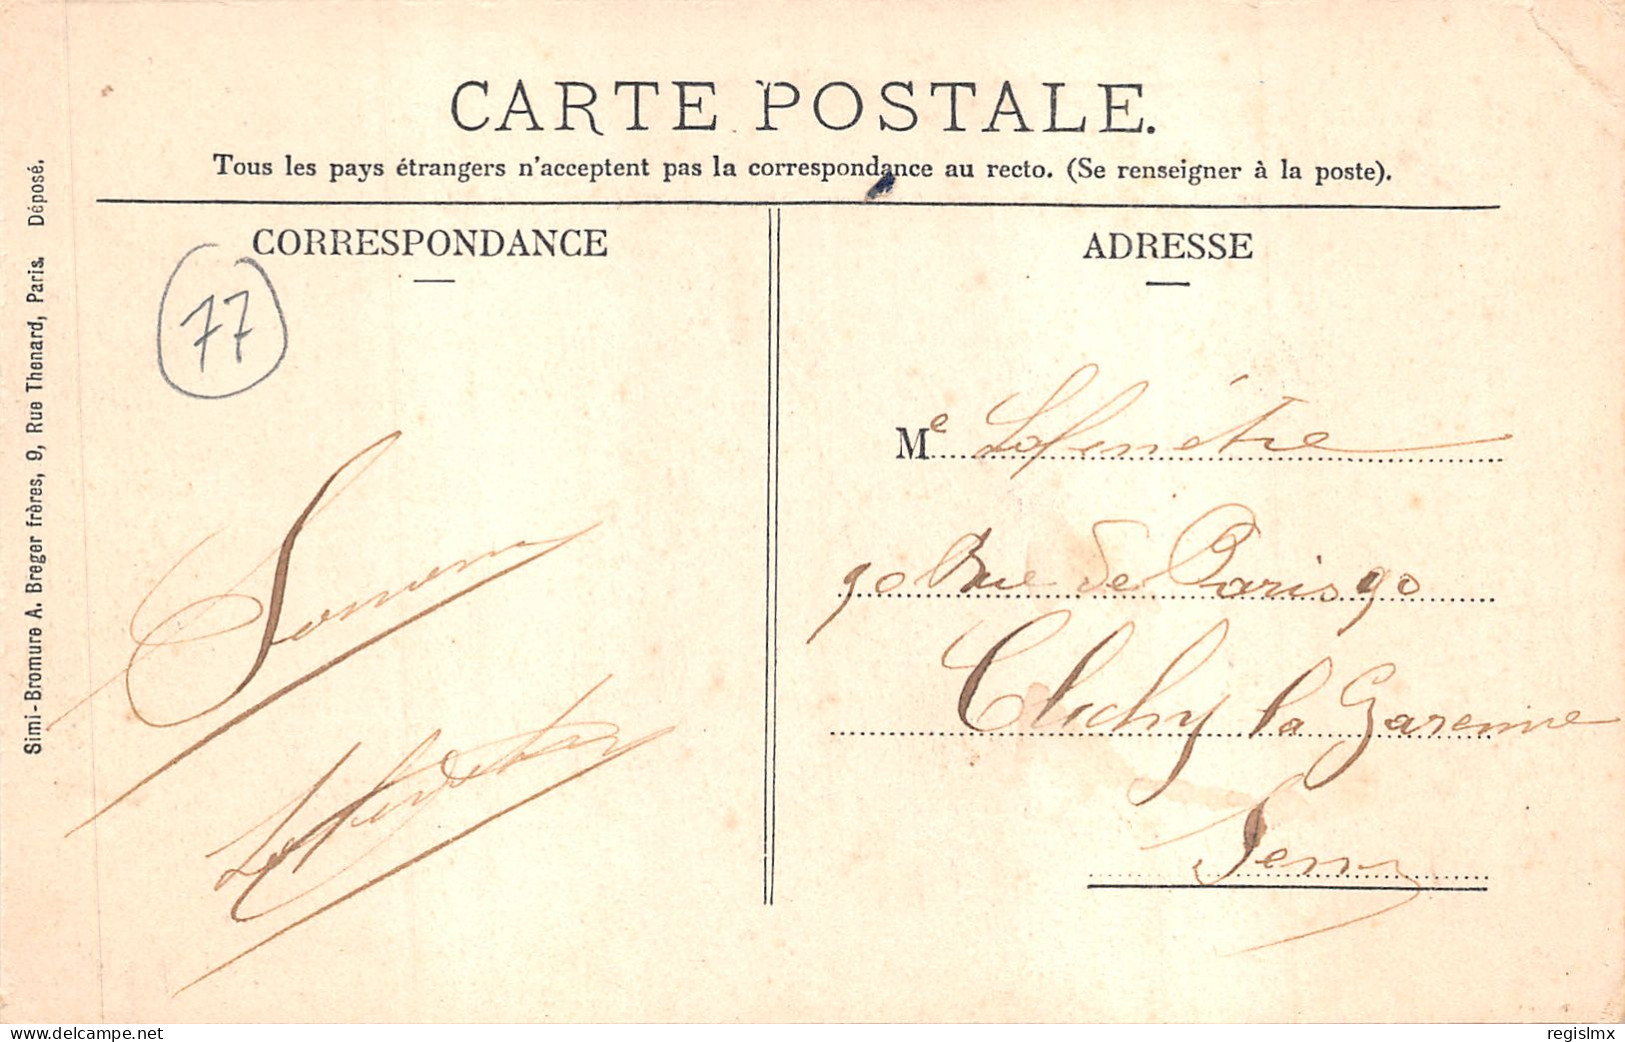 CARTE POSTALE.
Tous les pays étrangers n'acceptent pas la correspondance au recto. (Se renseigner à la poste).
CORRESPONDANCE
77
ADRESSE
Me Lafenêtre
90 Rue de Paris 90
Clichy la Garenne
Simi-Bromure A. Breger frères, 9, Rue Thenard, Paris. Déposé.
www.delcampe.net
regislmx